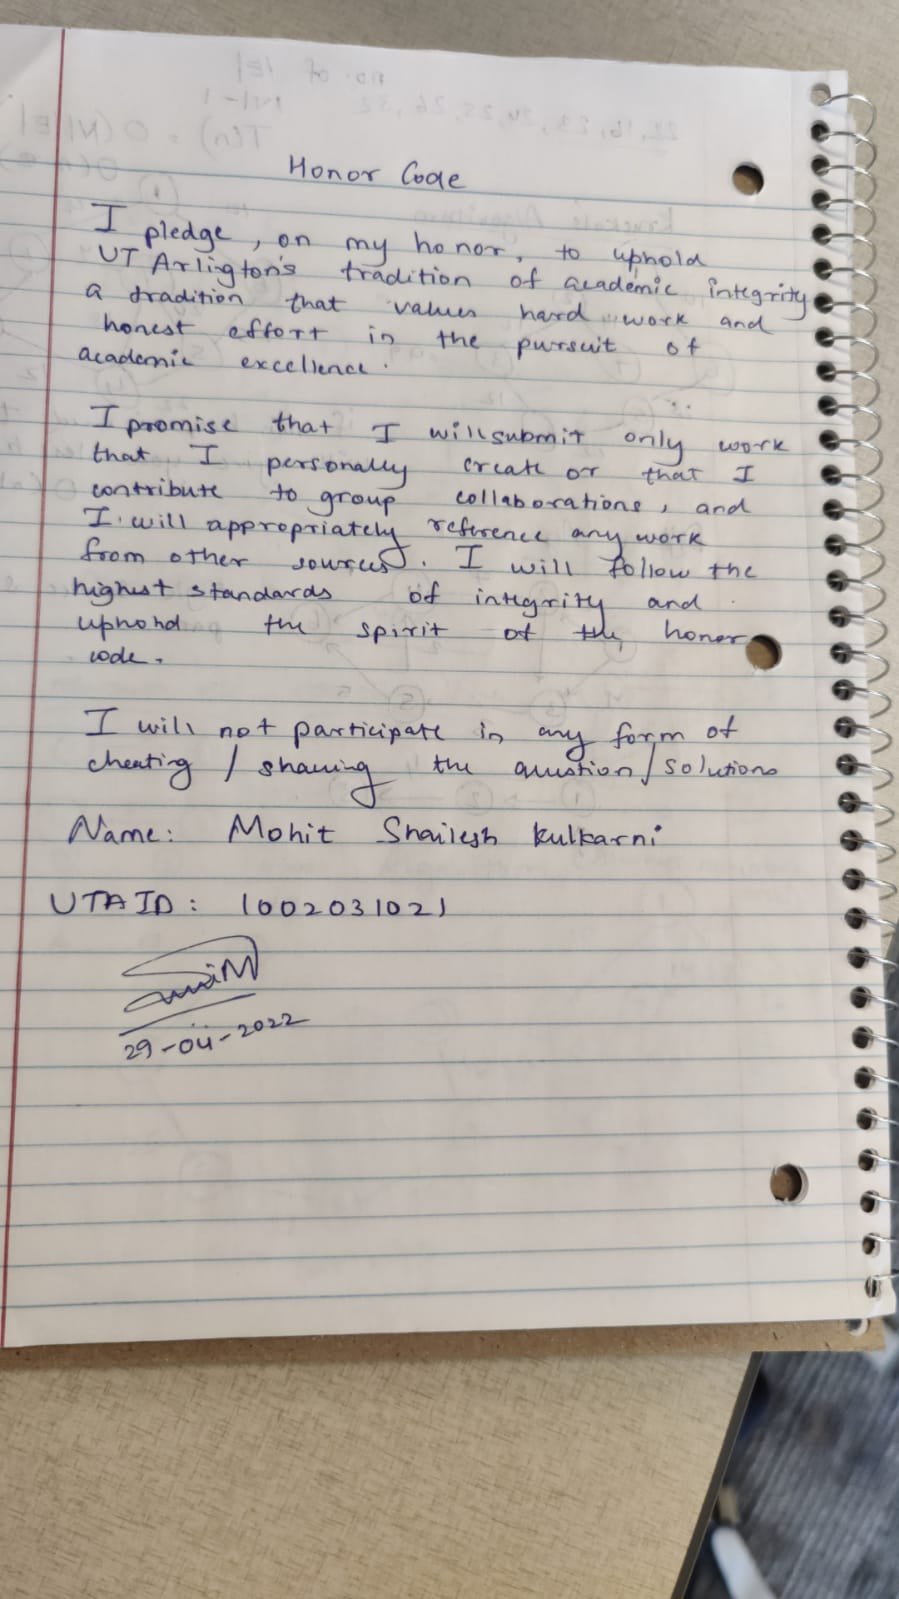 Honor Code
I pledge, on my honor, to uphold
UT Arlington's tradition of academic integrity
a tradition that values hard work and
honest effort in the pursuit of
academic excellence.
I promise that I will submit only work
that I personally create or that I
contribute to group collaborations, and
I will appropriately reference any work
from other sources. I will follow the
highest standards of integrity and
uphold the spirit of the honor
code.
I will not participate in any form of
cheating / sharing the question/solutions
Name: Mohit Shailesh Kulkarni
UTA ID: 1002031021
29-04-2022